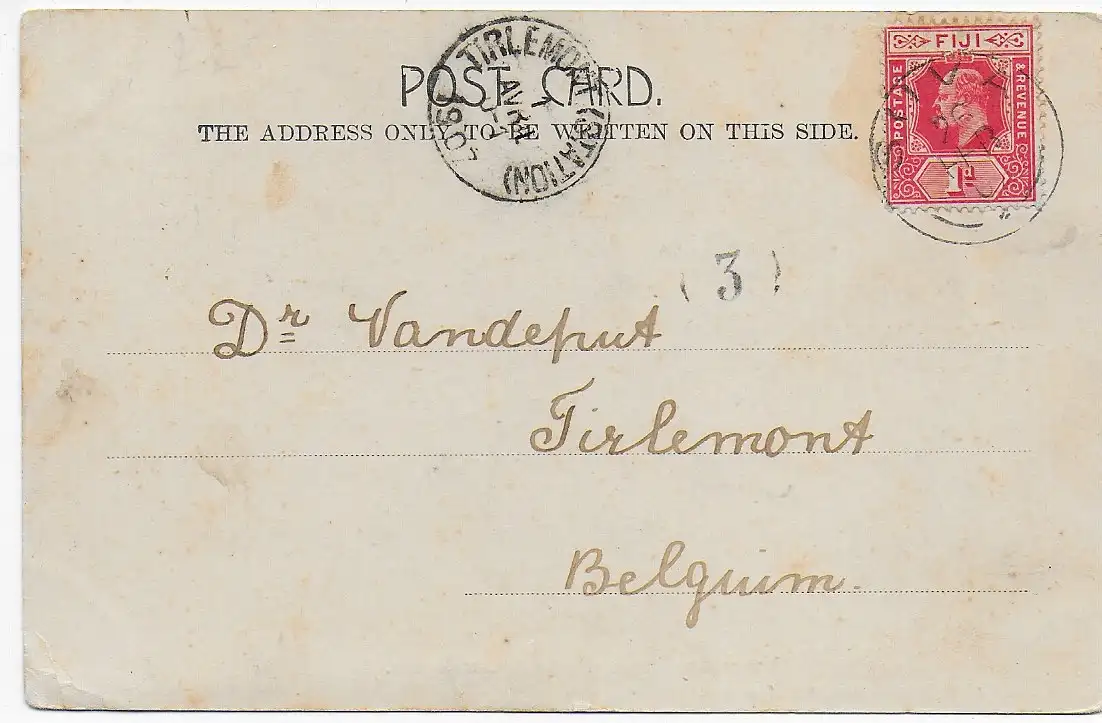 POST CARD.
THE ADDRESS ONLY TO BE WRITTEN ON THIS SIDE.
TIRLEMONT (STATION)
1905
FIJI
POSTAGE & REVENUE
1d
SUVA
(3)
Dr Vandeput
Tirlemont
Belguim.